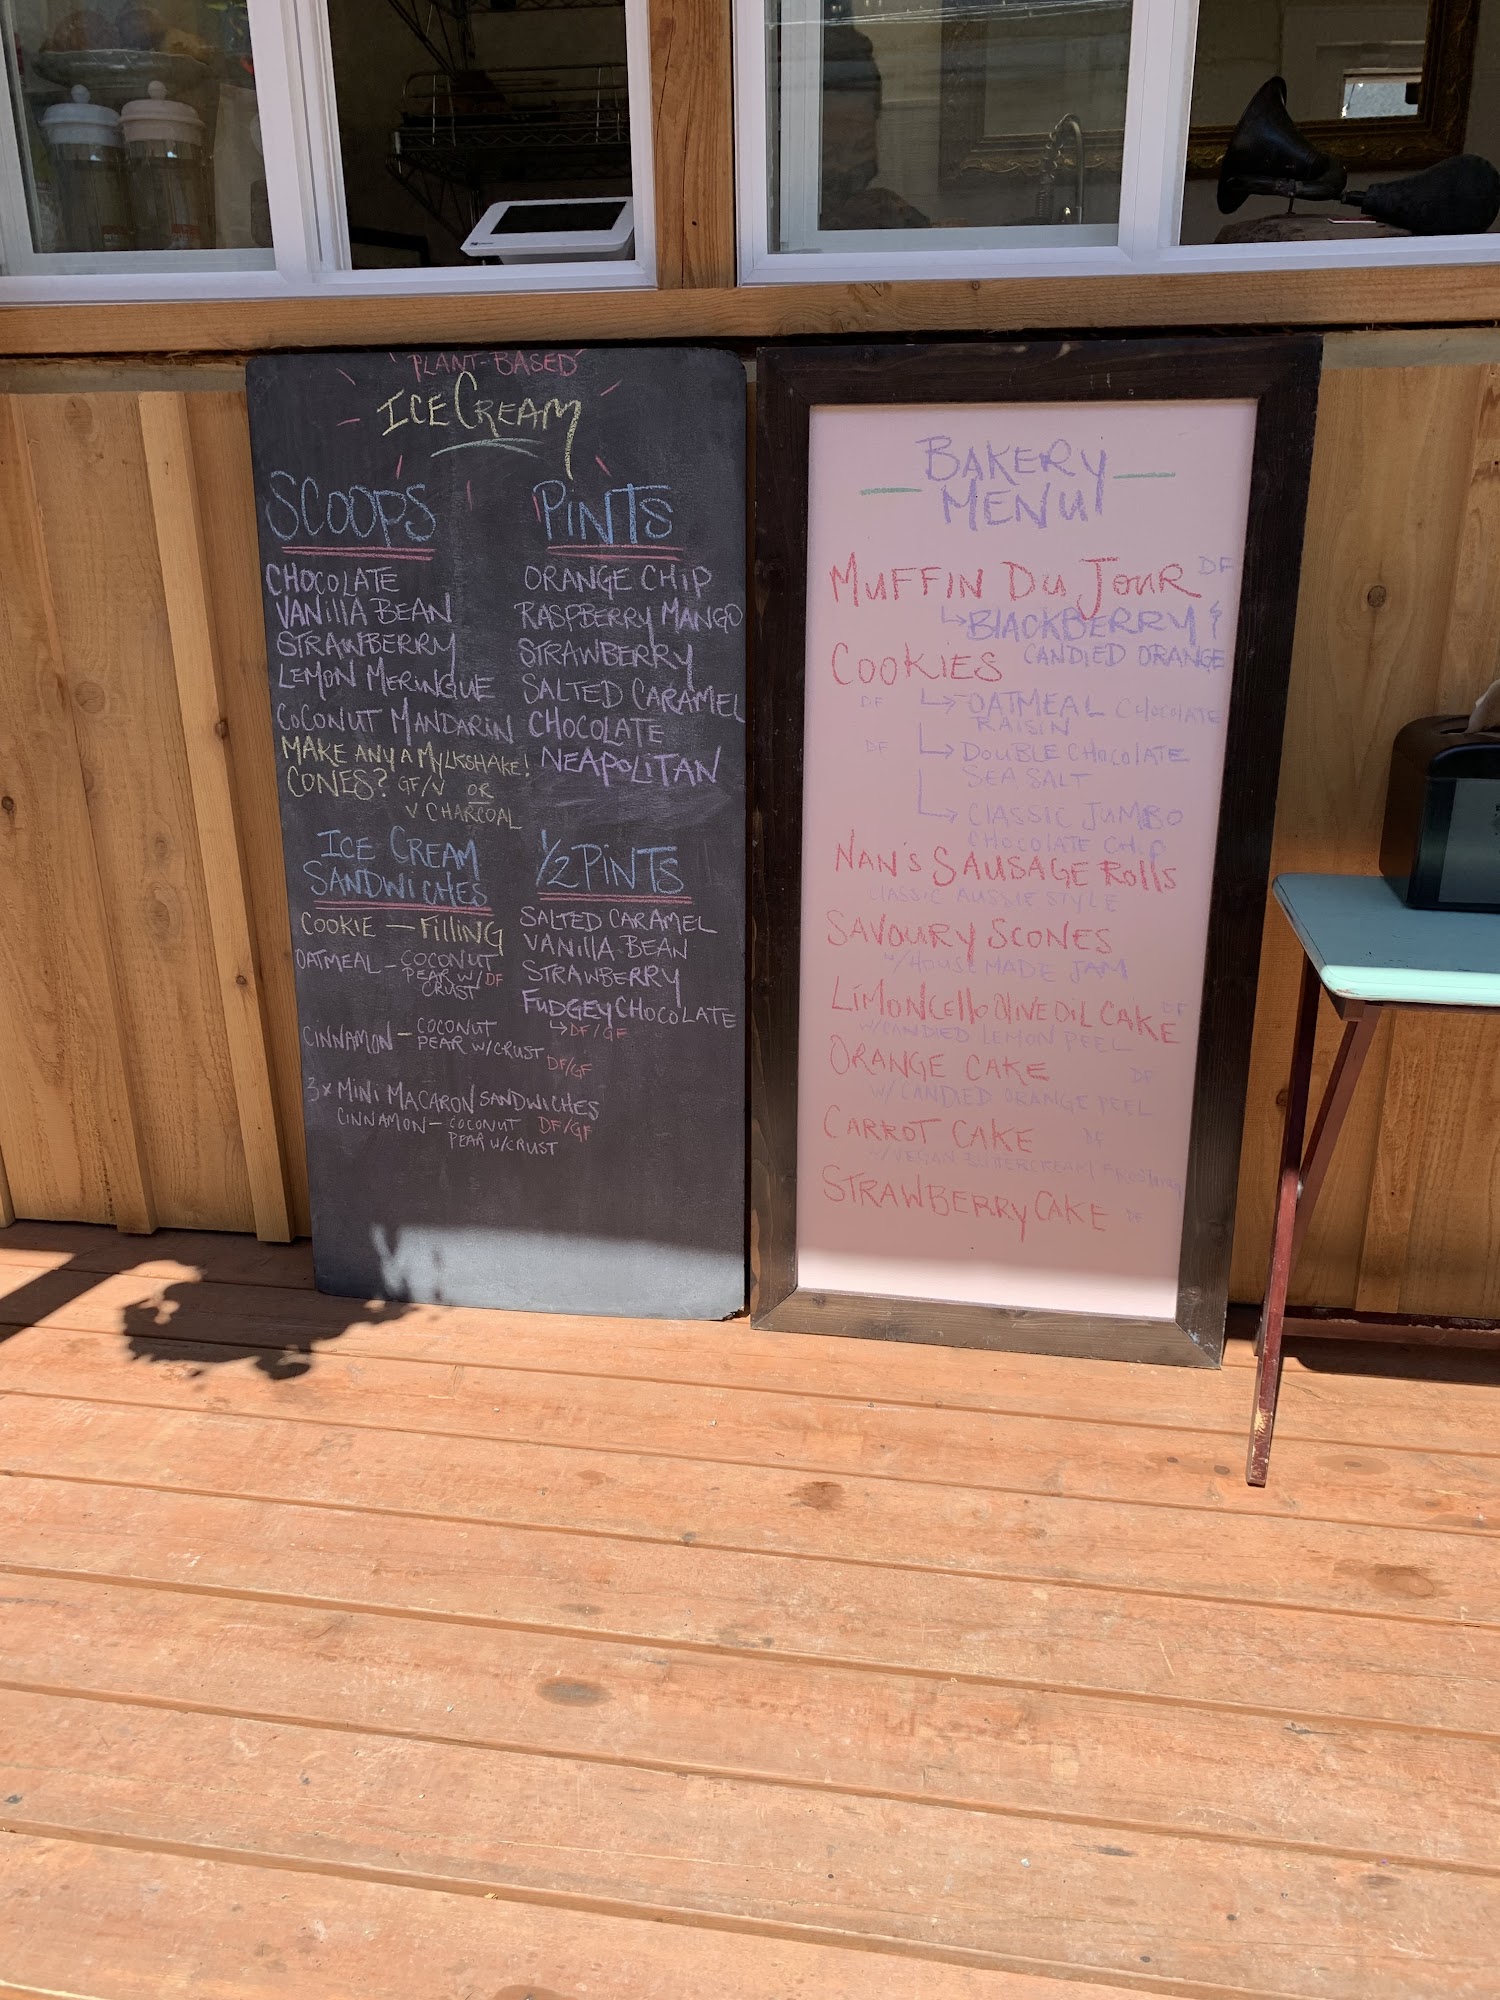 PLANT-BASED
ICE CREAM
SCOOPS
CHOCOLATE
VANILLA BEAN
STRAWBERRY
LEMON MERINGUE
COCONUT MANDARIN
MAKE ANY A MYLKSHAKE!
CONES? GF/V OR
V CHARCOAL
PINTS
ORANGE CHIP
RASPBERRY MANGO
STRAWBERRY
SALTED CARAMEL
CHOCOLATE
NEAPOLITAN
ICE CREAM
SANDWICHES
COOKIE — FILLING
OATMEAL - COCONUT
PEAR W/ DF
CRUST
CINNAMON - COCONUT
PEAR W/CRUST DF/GF
3x MINI MACARON SANDWICHES
CINNAMON - COCONUT DF/GF
PEAR W/CRUST
1/2 PINTS
SALTED CARAMEL
VANILLA BEAN
STRAWBERRY
FUDGEY CHOCOLATE
↳ DF/GF
BAKERY
MENU
MUFFIN DU JOUR DF
↳ BLACKBERRY &
CANDIED ORANGE
COOKIES
DF ↳ OATMEAL CHOCOLATE
RAISIN
DF ↳ DOUBLE CHOCOLATE
SEA SALT
↳ CLASSIC JUMBO
CHOCOLATE CHIP
NAN'S SAUSAGE ROLLS
CLASSIC AUSSIE STYLE
SAVOURY SCONES
W/HOUSE MADE JAM
LIMONCELLO OLIVE OIL CAKE DF
W/CANDIED LEMON PEEL
ORANGE CAKE DF
W/ CANDIED ORANGE PEEL
CARROT CAKE DF
W/VEGAN BUTTERCREAM FROSTING
STRAWBERRY CAKE DF